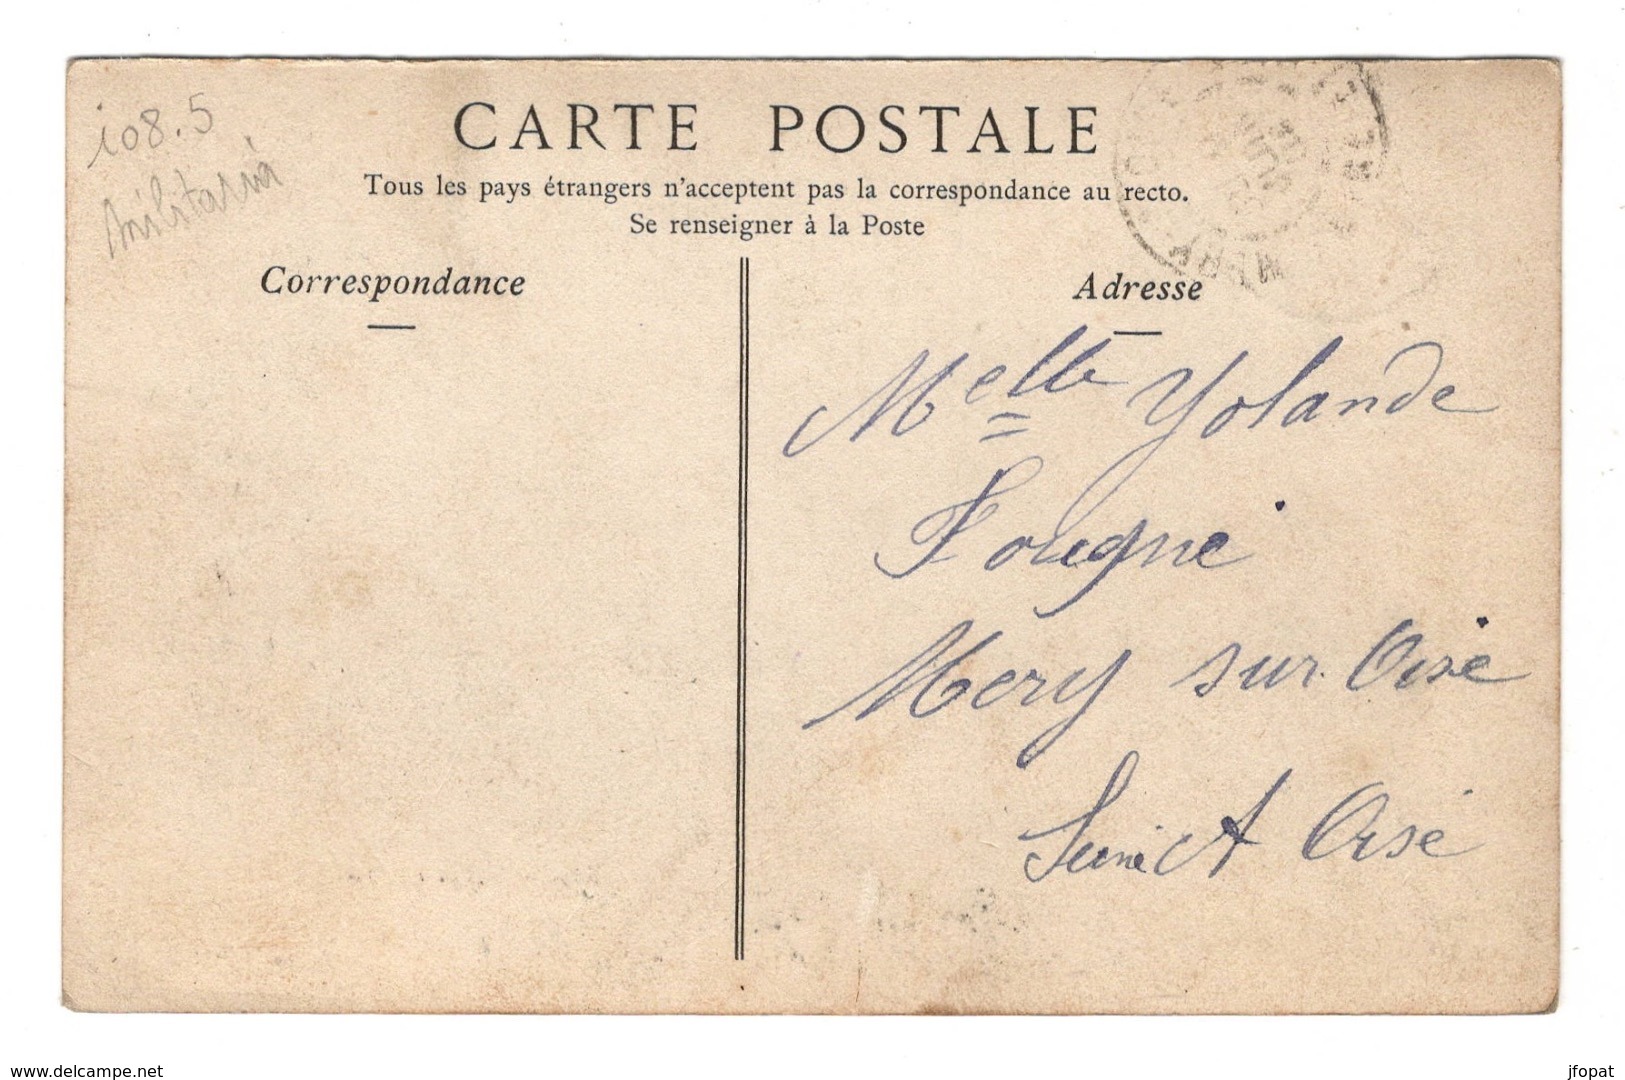 108.5
Militaria
CARTE POSTALE
Tous les pays étrangers n'acceptent pas la correspondance au recto.
Se renseigner à la Poste
Correspondance
Adresse
Melle Yolande
Fougne
Mery sur Oise
Seine et Oise
www.delcampe.net
jfopat